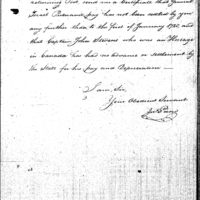 returning Post, send me a Certificate that General
Israel Putnams pay has not been settled by you
any further than to the first of January 1782 and
that Captain John Stevens who was an Hostage
in Canada has had no Advance or settlement by
the State for his pay and Depreciation —
I am, Sir,
Your Obedient Servant